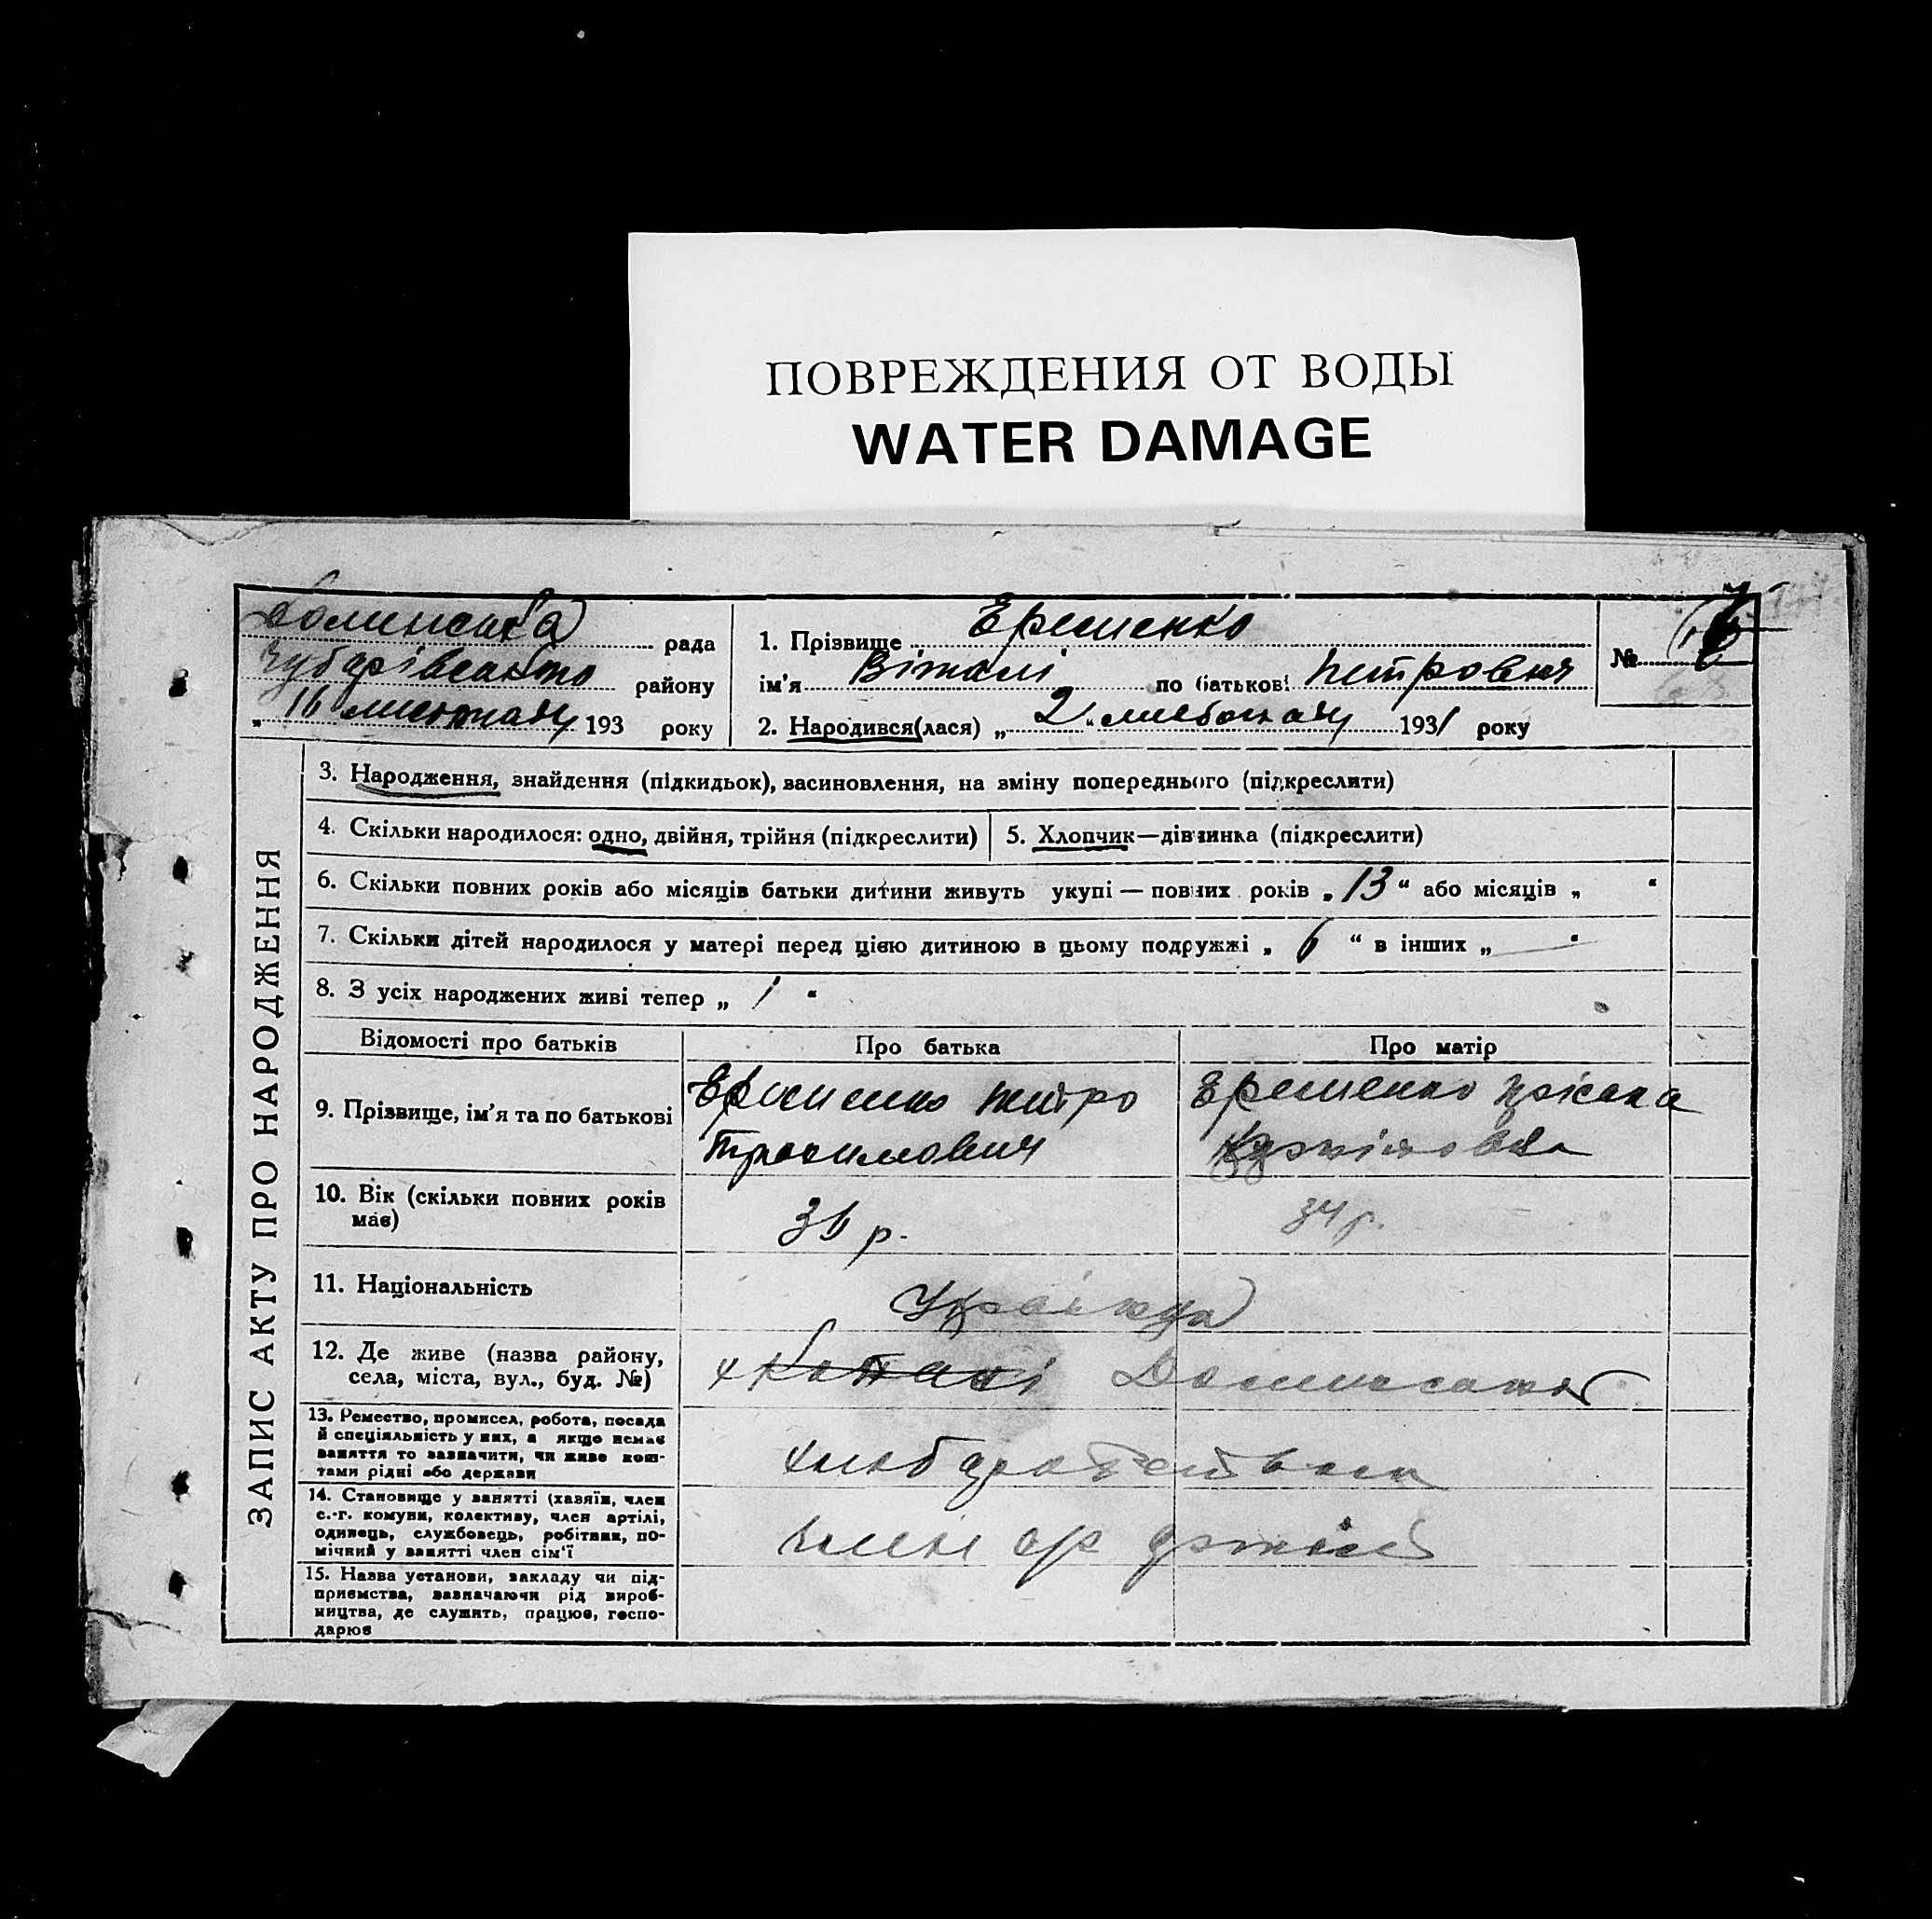 ПОВРЕЖДЕНИЯ ОТ ВОДЫ
WATER DAMAGE
рада
району
„ 16 листопаду 193 року
1. Прізвище Ерешенко
ім'я Віталі по батькові Петрович
2. Народився(лася) „ 2 “ листопаду 1931 року
№
ЗАПИС АКТУ ПРО НАРОДЖЕННЯ
3. Народження, знайдення (підкидьок), васиновлення, на зміну попереднього (підкреслити)
4. Скільки народилося: одно, двійня, трійня (підкреслити)
5. Хлопчик—дівчинка (підкреслити)
6. Скільки повних років або місяців батьки дитини живуть укупі — повних років „ 13 “ або місяців „ “
7. Скільки дітей народилося у матері перед цією дитиною в цьому подружжі „ 6 “ в інших „ — “
8. З усіх народжених живі тепер „ 1 “
Відомості про батьків
Про батька
Про матір
9. Прізвище, ім'я та по батькові
Ерешенко Петро
Трохимович
Ерешенко
10. Вік (скільки повних років
має)
36 р.
34 р.
11. Національність
Українці
12. Де живе (назва району,
села, міста, вул., буд. №)
х Копані
13. Ремество, промисел, робота, посада
й спеціяльність у них, а якщо немає
заняття то зазначити, чи живе кош-
тами рідні або держави
14. Становище у занятті (хазяїн, член
с.-г. комуни, колективу, член артілі,
одинець, службовець, робітник, по-
мічний у занятті член сім'ї
член ср артілі
15. Назва установи, закладу чи під-
приємства, зазначаючи рід вироб-
ництва, де служить, працює, госпо-
дарює